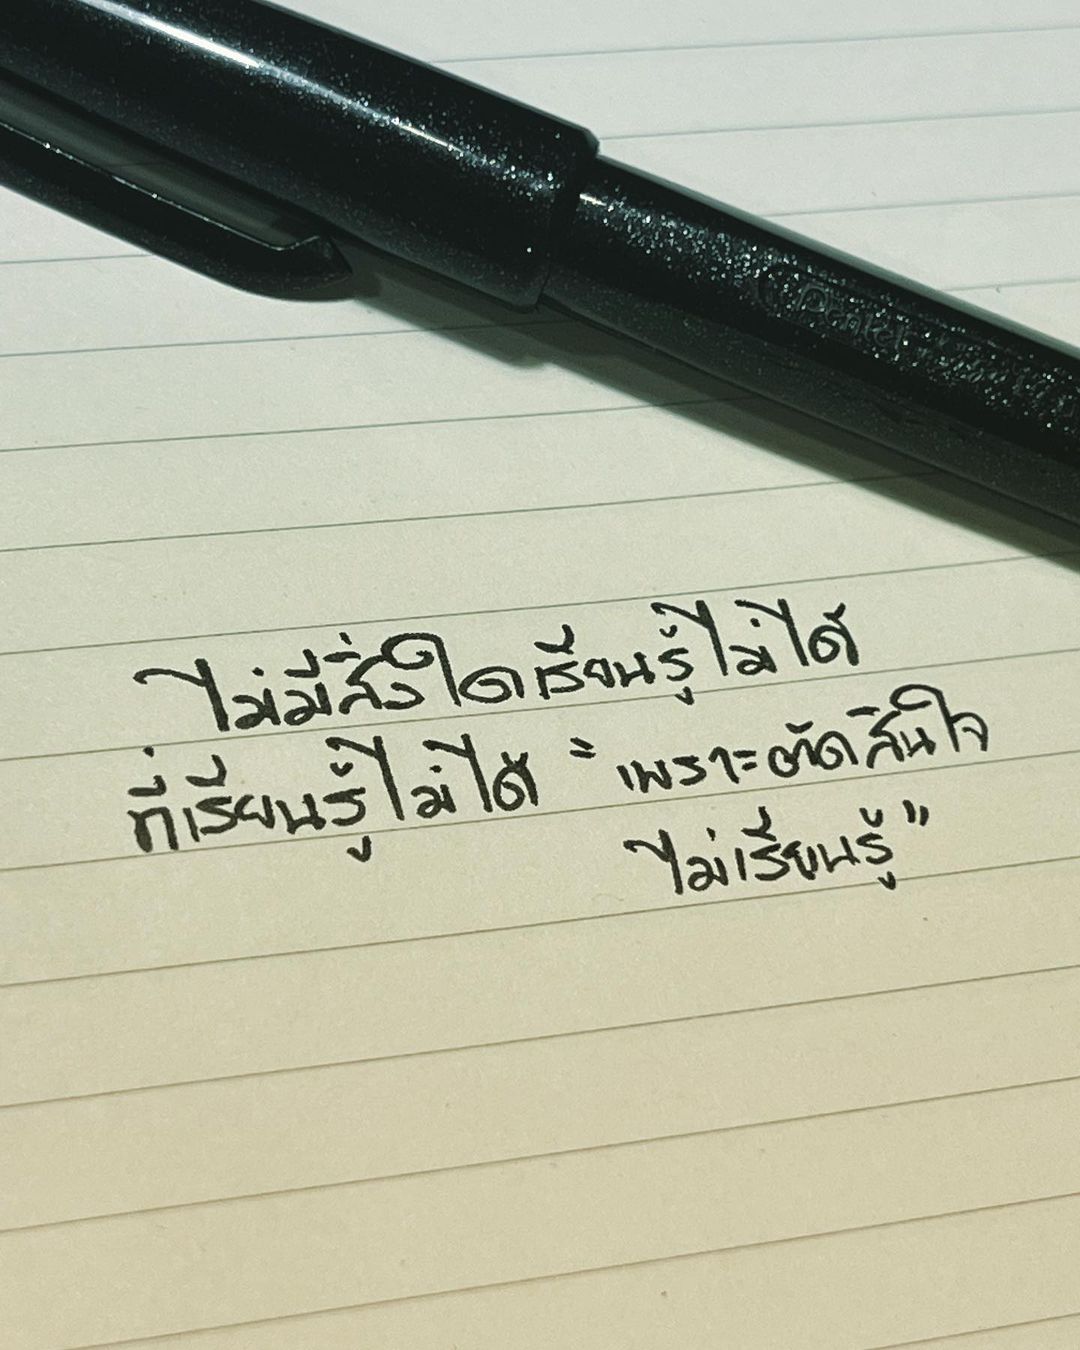 Pentel
ไม่มีสิ่งใดเรียนรู้ไม่ได้
ที่เรียนรู้ไม่ได้ "เพราะตัดสินใจ
ไม่เรียนรู้"